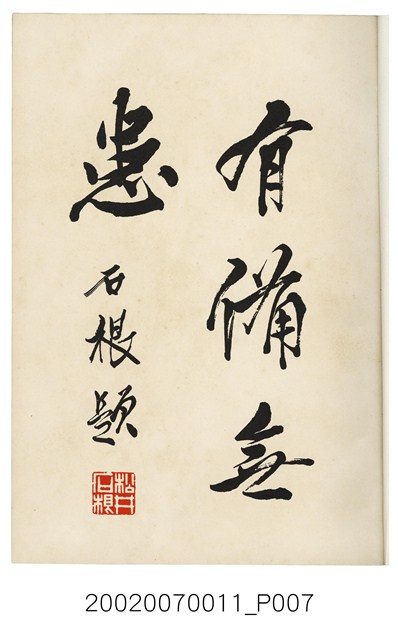 有備無
患
石根題
松井
石根
20020070011_P007